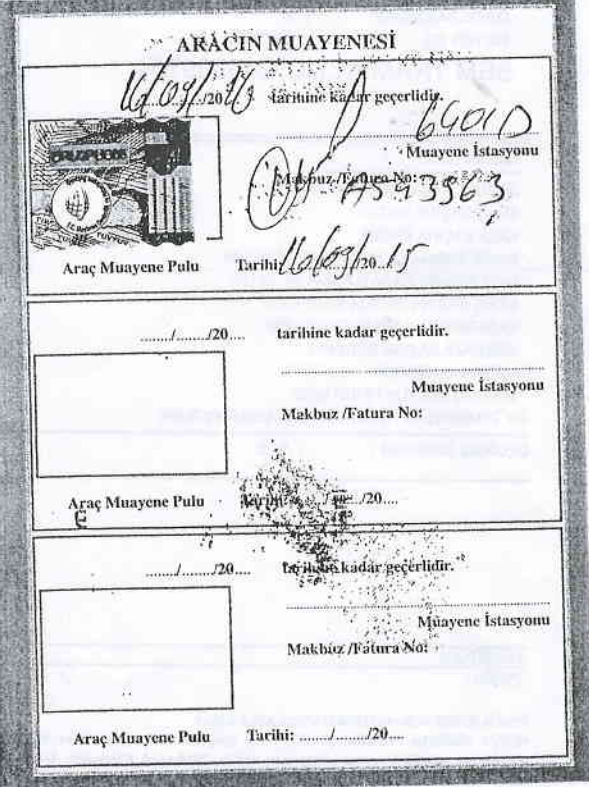 ARACIN MUAYENESİ
16/09/2016 tarihine kadar geçerlidir.
6401D
Muayene İstasyonu
Makbuz /Fatura No: A543963
Araç Muayene Pulu Tarihi: 16/09/2015
......../......../20.... tarihine kadar geçerlidir.
Muayene İstasyonu
Makbuz /Fatura No:
Araç Muayene Pulu Tarihi: ......../......../20....
......../......../20.... tarihine kadar geçerlidir.
Muayene İstasyonu
Makbuz /Fatura No:
Araç Muayene Pulu Tarihi: ......../......../20....